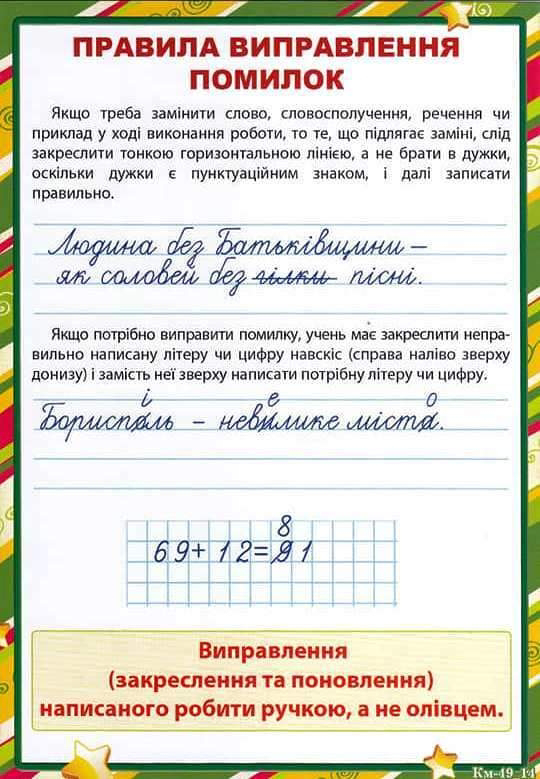 ПРАВИЛА ВИПРАВЛЕННЯ
ПОМИЛОК
Якщо треба замінити слово, словосполучення, речення чи
приклад у ході виконання роботи, то те, що підлягає заміні, слід
закреслити тонкою горизонтальною лінією, а не брати в дужки,
оскільки дужки є пунктуаційним знаком, і далі записати
правильно.
Людина без Батьківщини –
як соловей без гілки пісні.
Якщо потрібно виправити помилку, учень має закреслити непра-
вильно написану літеру чи цифру навскіс (справа наліво зверху
донизу) і замість неї зверху написати потрібну літеру чи цифру.
і е о
Бориспаль – невилике міста.
8
69+12=91
Виправлення
(закреслення та поновлення)
написаного робити ручкою, а не олівцем.
Км-49-14